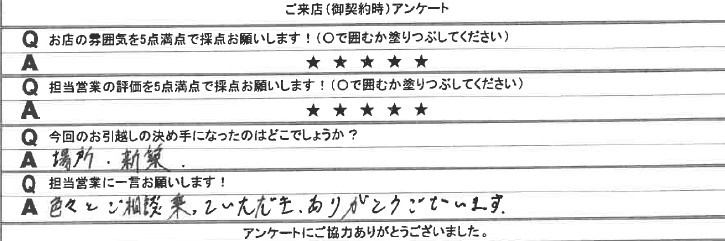 ご来店(御契約時)アンケート
Q お店の雰囲気を5点満点で採点お願いします!(〇で囲むか塗りつぶしてください)
A ★ ★ ★ ★ ★
Q 担当営業の評価を5点満点で採点お願いします!(〇で囲むか塗りつぶしてください)
A ★ ★ ★ ★ ★
Q 今回のお引越しの決め手になったのはどこでしょうか?
A 場所・新築.
Q 担当営業に一言お願いします!
A 色々とご相談乗っていただき、ありがとうございます.
アンケートにご協力ありがとうございました。